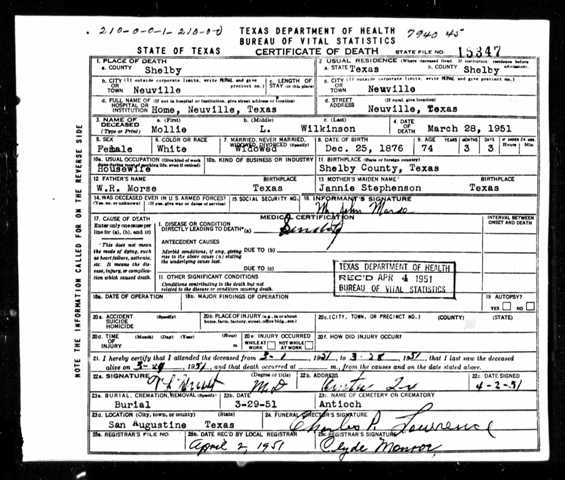 210-0-0-1-210-0-0
TEXAS DEPARTMENT OF HEALTH
7940 45
BUREAU OF VITAL STATISTICS
STATE OF TEXAS
CERTIFICATE OF DEATH
STATE FILE NO. 15347
1. PLACE OF DEATH
a. COUNTY Shelby
2. USUAL RESIDENCE (Where deceased lived. If institution: residence before
a. STATE Texas b. COUNTY Shelby
b. CITY (If outside corporate limits, write RURAL and give precinct no.)
OR TOWN Neuville
c. LENGTH OF STAY (in this place)
c. CITY (If outside corporate limits, write RURAL and give precinct no.)
OR TOWN Neuville
d. FULL NAME OF (If not in hospital or institution, give street address or location)
HOSPITAL OR INSTITUTION Home, Neuville, Texas
d. STREET ADDRESS (If rural, give location)
Neuville, Texas
3. NAME OF DECEASED (Type or Print)
a. (First) Mollie
b. (Middle) L.
c. (Last) Wilkinson
4. DATE OF DEATH March 28, 1951
5. SEX Female
6. COLOR OR RACE White
7. MARRIED, NEVER MARRIED, WIDOWED, DIVORCED (Specify) Widowed
8. DATE OF BIRTH Dec. 25, 1876
9. AGE YEARS 74 MONTHS 3 DAYS 3
Hours Min.
10a. USUAL OCCUPATION (Give kind of work done during most of working life, even if retired)
Housewife
10b. KIND OF BUSINESS OR INDUSTRY
11. BIRTHPLACE (State or foreign country)
Shelby County, Texas
12. FATHER'S NAME
W.R. Morse Texas
13. MOTHER'S MAIDEN NAME
Jannie Stephenson Texas
14. WAS DECEASED EVER IN U.S. ARMED FORCES?
(Yes, no or unknown) (If yes, give war or dates of service)
15. SOCIAL SECURITY NO.
16. INFORMANT'S SIGNATURE
17. CAUSE OF DEATH
Enter only one cause per line for (a), (b), and (c)
MEDICAL CERTIFICATION
INTERVAL BETWEEN ONSET AND DEATH
I. DISEASE OR CONDITION DIRECTLY LEADING TO DEATH* (a) Senility
* This does not mean the mode of dying, such as heart failure, asthenia, etc. It means the disease, injury, or complication which caused death.
ANTECEDENT CAUSES
Morbid conditions, if any, giving rise to the above cause (a) stating the underlying cause last.
DUE TO (b)
DUE TO (c)
II. OTHER SIGNIFICANT CONDITIONS
Conditions contributing to the death but not related to the disease or condition causing death.
TEXAS DEPARTMENT OF HEALTH
REC'D APR 4 1951
BUREAU OF VITAL STATISTICS
18a. DATE OF OPERATION
18b. MAJOR FINDINGS OF OPERATION
19. AUTOPSY?
YES NO
20a. ACCIDENT SUICIDE HOMICIDE (Specify)
20b. PLACE OF INJURY (e.g., in or about home, farm, factory, street, office bldg., etc.)
20c. (CITY, TOWN, OR PRECINCT NO.) (COUNTY) (STATE)
20d. TIME OF INJURY (Month) (Day) (Year) (Hour) m.
20e. INJURY OCCURRED
WHILE AT WORK NOT WHILE AT WORK
20f. HOW DID INJURY OCCUR?
21. I hereby certify that I attended the deceased from 3-1 1951, to 3-28 1951, that I last saw the deceased
alive on 3-28 1951, and that death occurred at m., from the causes and on the date stated above.
22a. SIGNATURE (Degree or title) M.D
22b. ADDRESS
22c. DATE SIGNED 4-2-51
23a. BURIAL, CREMATION, REMOVAL (Specify)
Burial
23b. DATE
3-29-51
23c. NAME OF CEMETERY OR CREMATORY
Antioch
23d. LOCATION (City, town, or county) (State)
San Augustine Texas
24. FUNERAL DIRECTOR'S SIGNATURE
Charles P. Lawrence
25a. REGISTRAR'S FILE NO.
25b. DATE REC'D BY LOCAL REGISTRAR
April 2, 1951
25c. REGISTRAR'S SIGNATURE
Clyde Monroe
NOTE THE INFORMATION CALLED FOR ON THE REVERSE SIDE